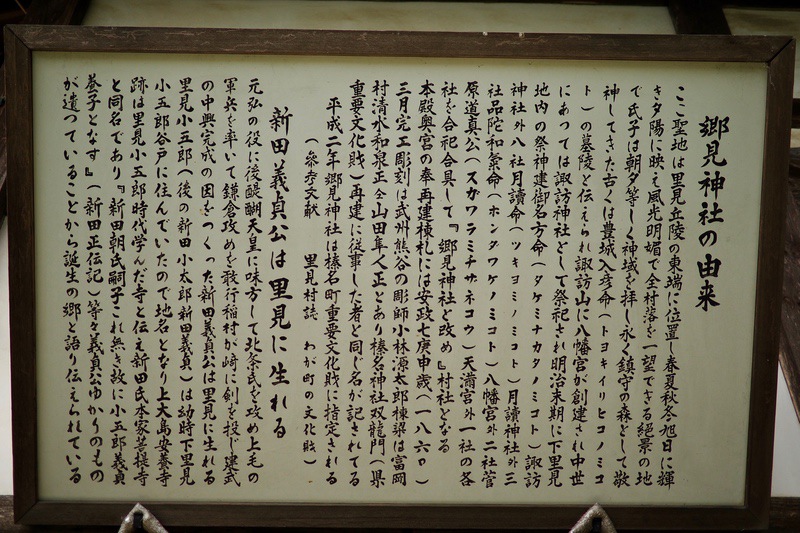 郷見神社の由来
ここ聖地は里見丘陵の東端に位置し春夏秋冬旭日に輝
き夕陽に映え風光明媚で全村落を一望できる絶景の地
で氏子は朝夕等しく神域を拝し永く鎮守の森として敬
神してきた古くは豊城入彦命（トヨキイリヒコノミコ
ト）の墓陵と伝えられ諏訪山に八幡宮が創建され中世
にあっては諏訪神社として祭祀され明治末期に下里見
地内の祭神建御名方命（タケミナカタノミコト）諏訪
神社外八社月讀命（ツキヨミノミコト）月讀神社外三
社品陀和気命（ホンタワケノミコト）八幡宮外二社菅
原道真公（スガワラミチザネコウ）天満宮外一社の各
社を合祀合具して『郷見神社と改め』村社となる
本殿奥宮の奉再建棟札には安政七庚申歳（一八六〇）
三月完工彫刻は武州熊谷の彫師小林源太郎棟梁は富岡
村清水和泉正仝山田隼人正とあり榛名神社双龍門（県
重要文化財）再建に従事した者と同じ名が記されてる
平成二年郷見神社は榛名町重要文化財に指定される
（参考文献　里見村誌　わが町の文化財）
新田義貞公は里見に生れる
元弘の役に後醍醐天皇に味方して北条氏を攻め上毛の
軍兵を率いて鎌倉攻めを敢行稲村が崎に剣を投じ建武
の中興完成の因をつくった新田義貞公は里見に生れる
里見小五郎（後の新田小太郎新田義貞）は幼時下里見
小五郎谷戸に住んでいたので地名となり上大島安養寺
跡は里見小五郎時代学んだ寺と伝え新田氏本家菩提寺
と同名であり『新田朝氏嗣子これ無き故に小五郎義貞
養子となす』（新田正伝記）等々義貞公ゆかりのもの
が遺っていることから誕生の郷と語り伝えられている